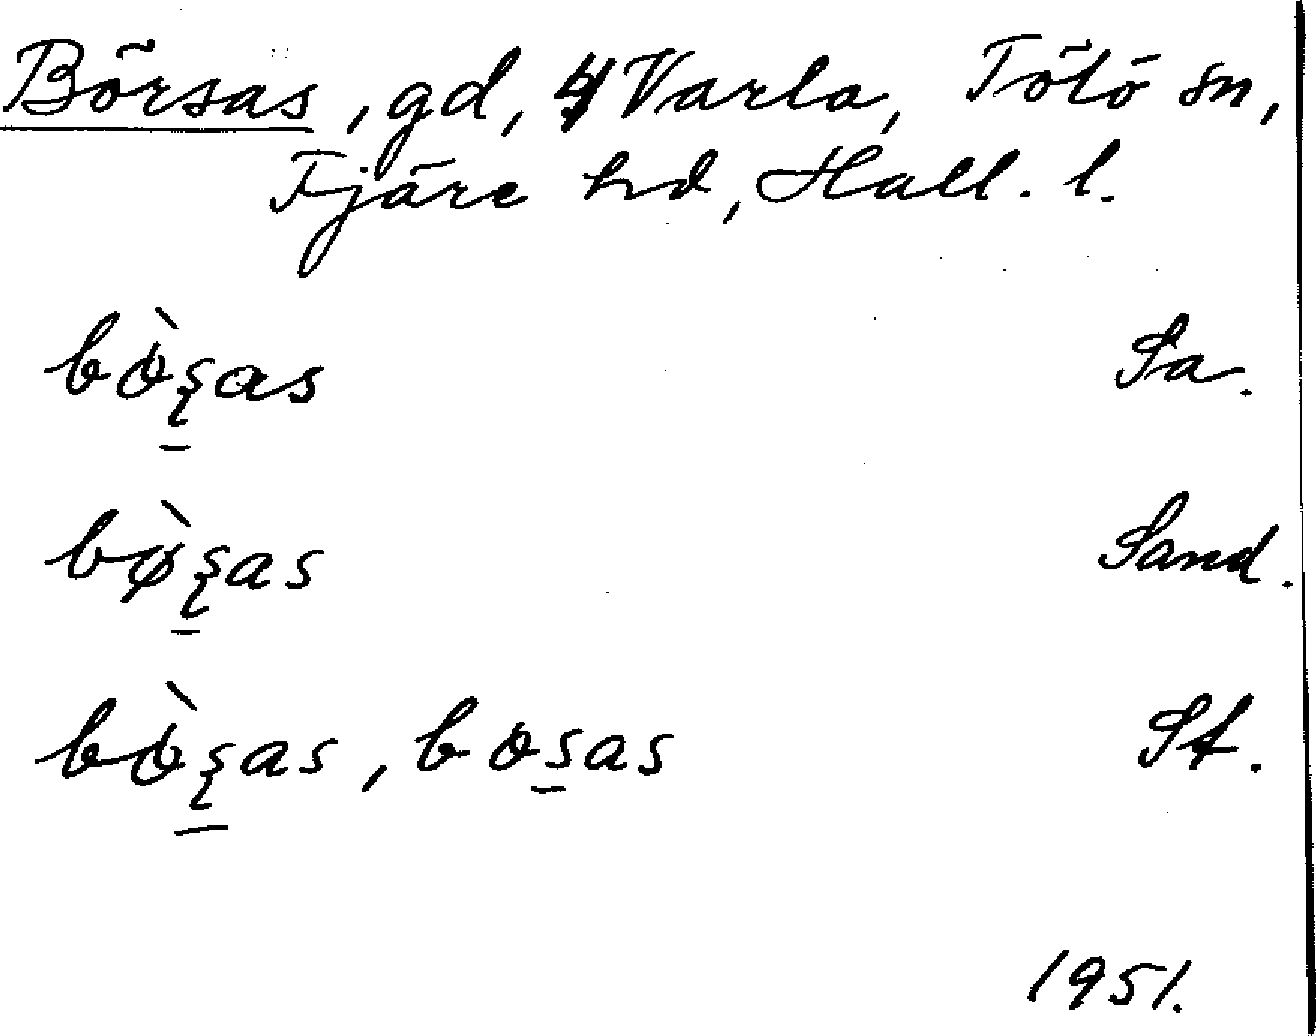 Börsas, gd, 4 Varla, Tölö sn,
Fjäre hd, Hall. l.
bò̵s̨̱as Sa.
bø̀s̨̱as Sand.
bò̵s̨̱as, bɵs̱as St.
1951.